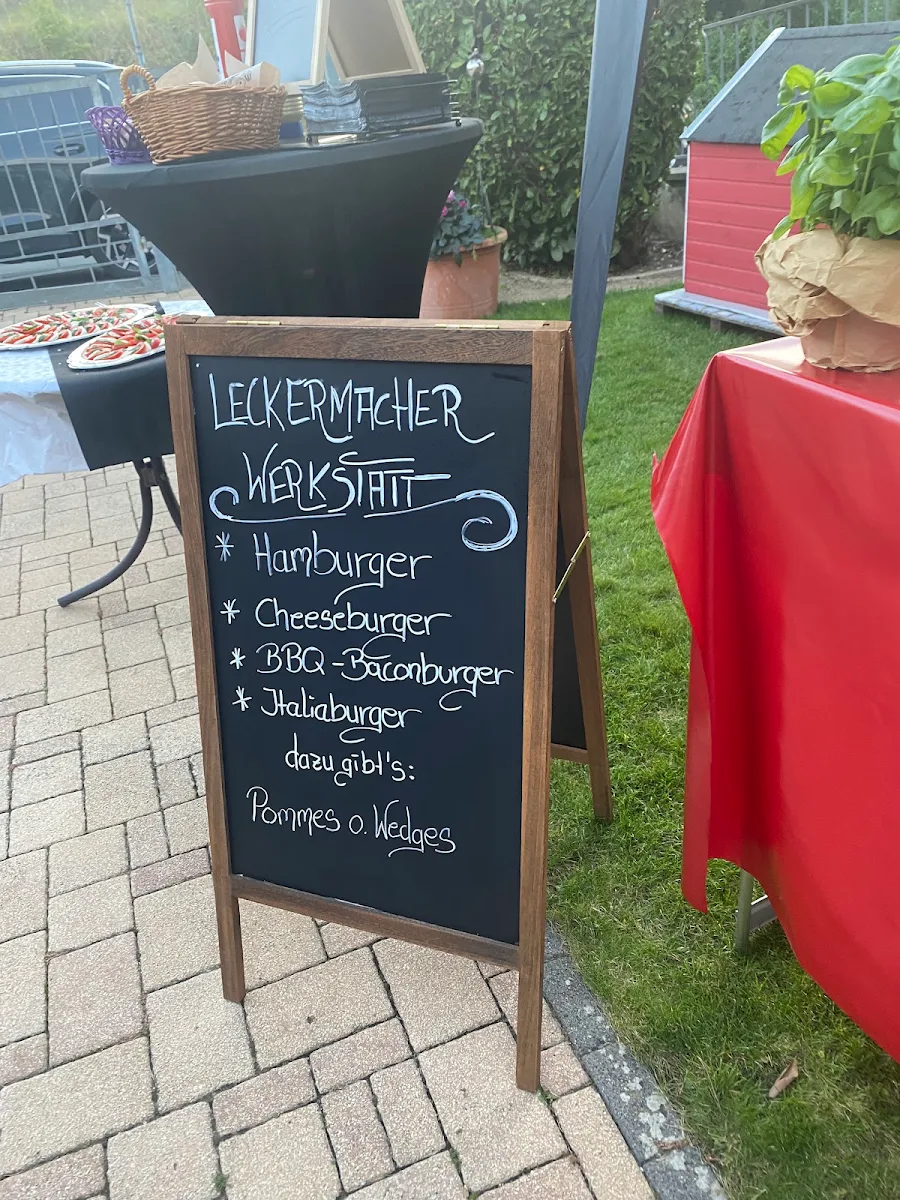 LECKERMACHER
WERKSTATT
* Hamburger
* Cheeseburger
* BBQ-Baconburger
* Italiaburger
dazu gibt's:
Pommes o. Wedges